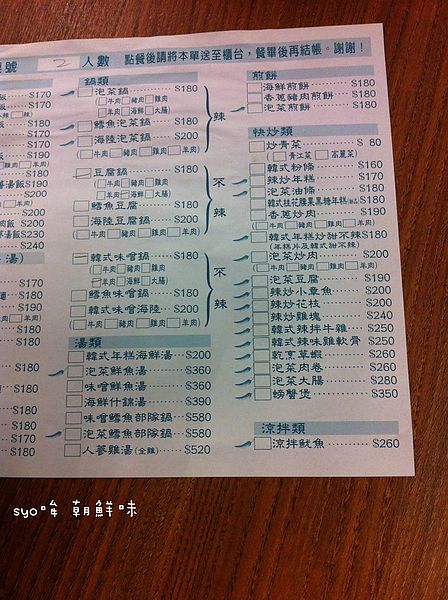 桌號 2 人數 點餐後請將本單送至櫃台，餐畢後再結帳。謝謝！
$170
$170
$170
$190
湯飯$190
$200
肉飯 $200
$230
$240
湯）
$170
$180
$180
$180
$180
$180
$180
$170
$180
鍋類
泡菜鍋 $180
（牛肉 豬肉 雞肉
羊肉 海鮮 大腸）
鱈魚泡菜鍋 $180
海陸泡菜鍋 $200
（牛肉 豬肉 雞肉 羊肉）
辣
豆腐鍋 $180
（牛肉 豬肉 雞肉
羊肉 海鮮 大腸）
鱈魚豆腐 $180
海陸豆腐鍋 $200
（牛肉 豬肉 雞肉 羊肉）
不辣
韓式味噌鍋 $180
（牛肉 豬肉 雞肉
羊肉 海鮮 大腸）
鱈魚味噌鍋 $180
韓式味噌海陸 $200
（牛肉 豬肉 雞肉 羊肉）
不辣
湯類
韓式年糕海鮮湯 $200
泡菜鮮魚湯 $360
味噌鮮魚湯 $360
海鮮什錦湯 $390
味噌鱈魚部隊鍋 $580
泡菜鱈魚部隊鍋 $580
人蔘雞湯(全雞) $520
煎餅
海鮮煎餅 $180
香蔥豬肉煎餅 $180
泡菜煎餅 $180
快炒類
炒青菜 $ 80
（青江菜 高麗菜）
韓式粉條 $160
辣炒年糕 $170
泡菜油條 $180
韓式桂花糖果黑糖年糕 $180
香蔥炒肉 $190
（牛肉 豬肉 雞肉 羊肉）
韓式年糕炒甜不辣$180
（年糕外及韓式甜不辣）
泡菜炒肉 $200
（牛肉 豬肉 雞肉 羊肉）
泡菜豆腐 $190
辣炒小章魚 $200
辣炒花枝 $200
辣炒雞塊 $240
韓式辣拌牛雜 $250
韓式辣味雞軟骨 $250
乾烹草蝦 $260
泡菜肉卷 $260
泡菜大腸 $280
螃蟹煲 $350
涼拌類
涼拌魷魚 $260
syo哞 朝鮮味